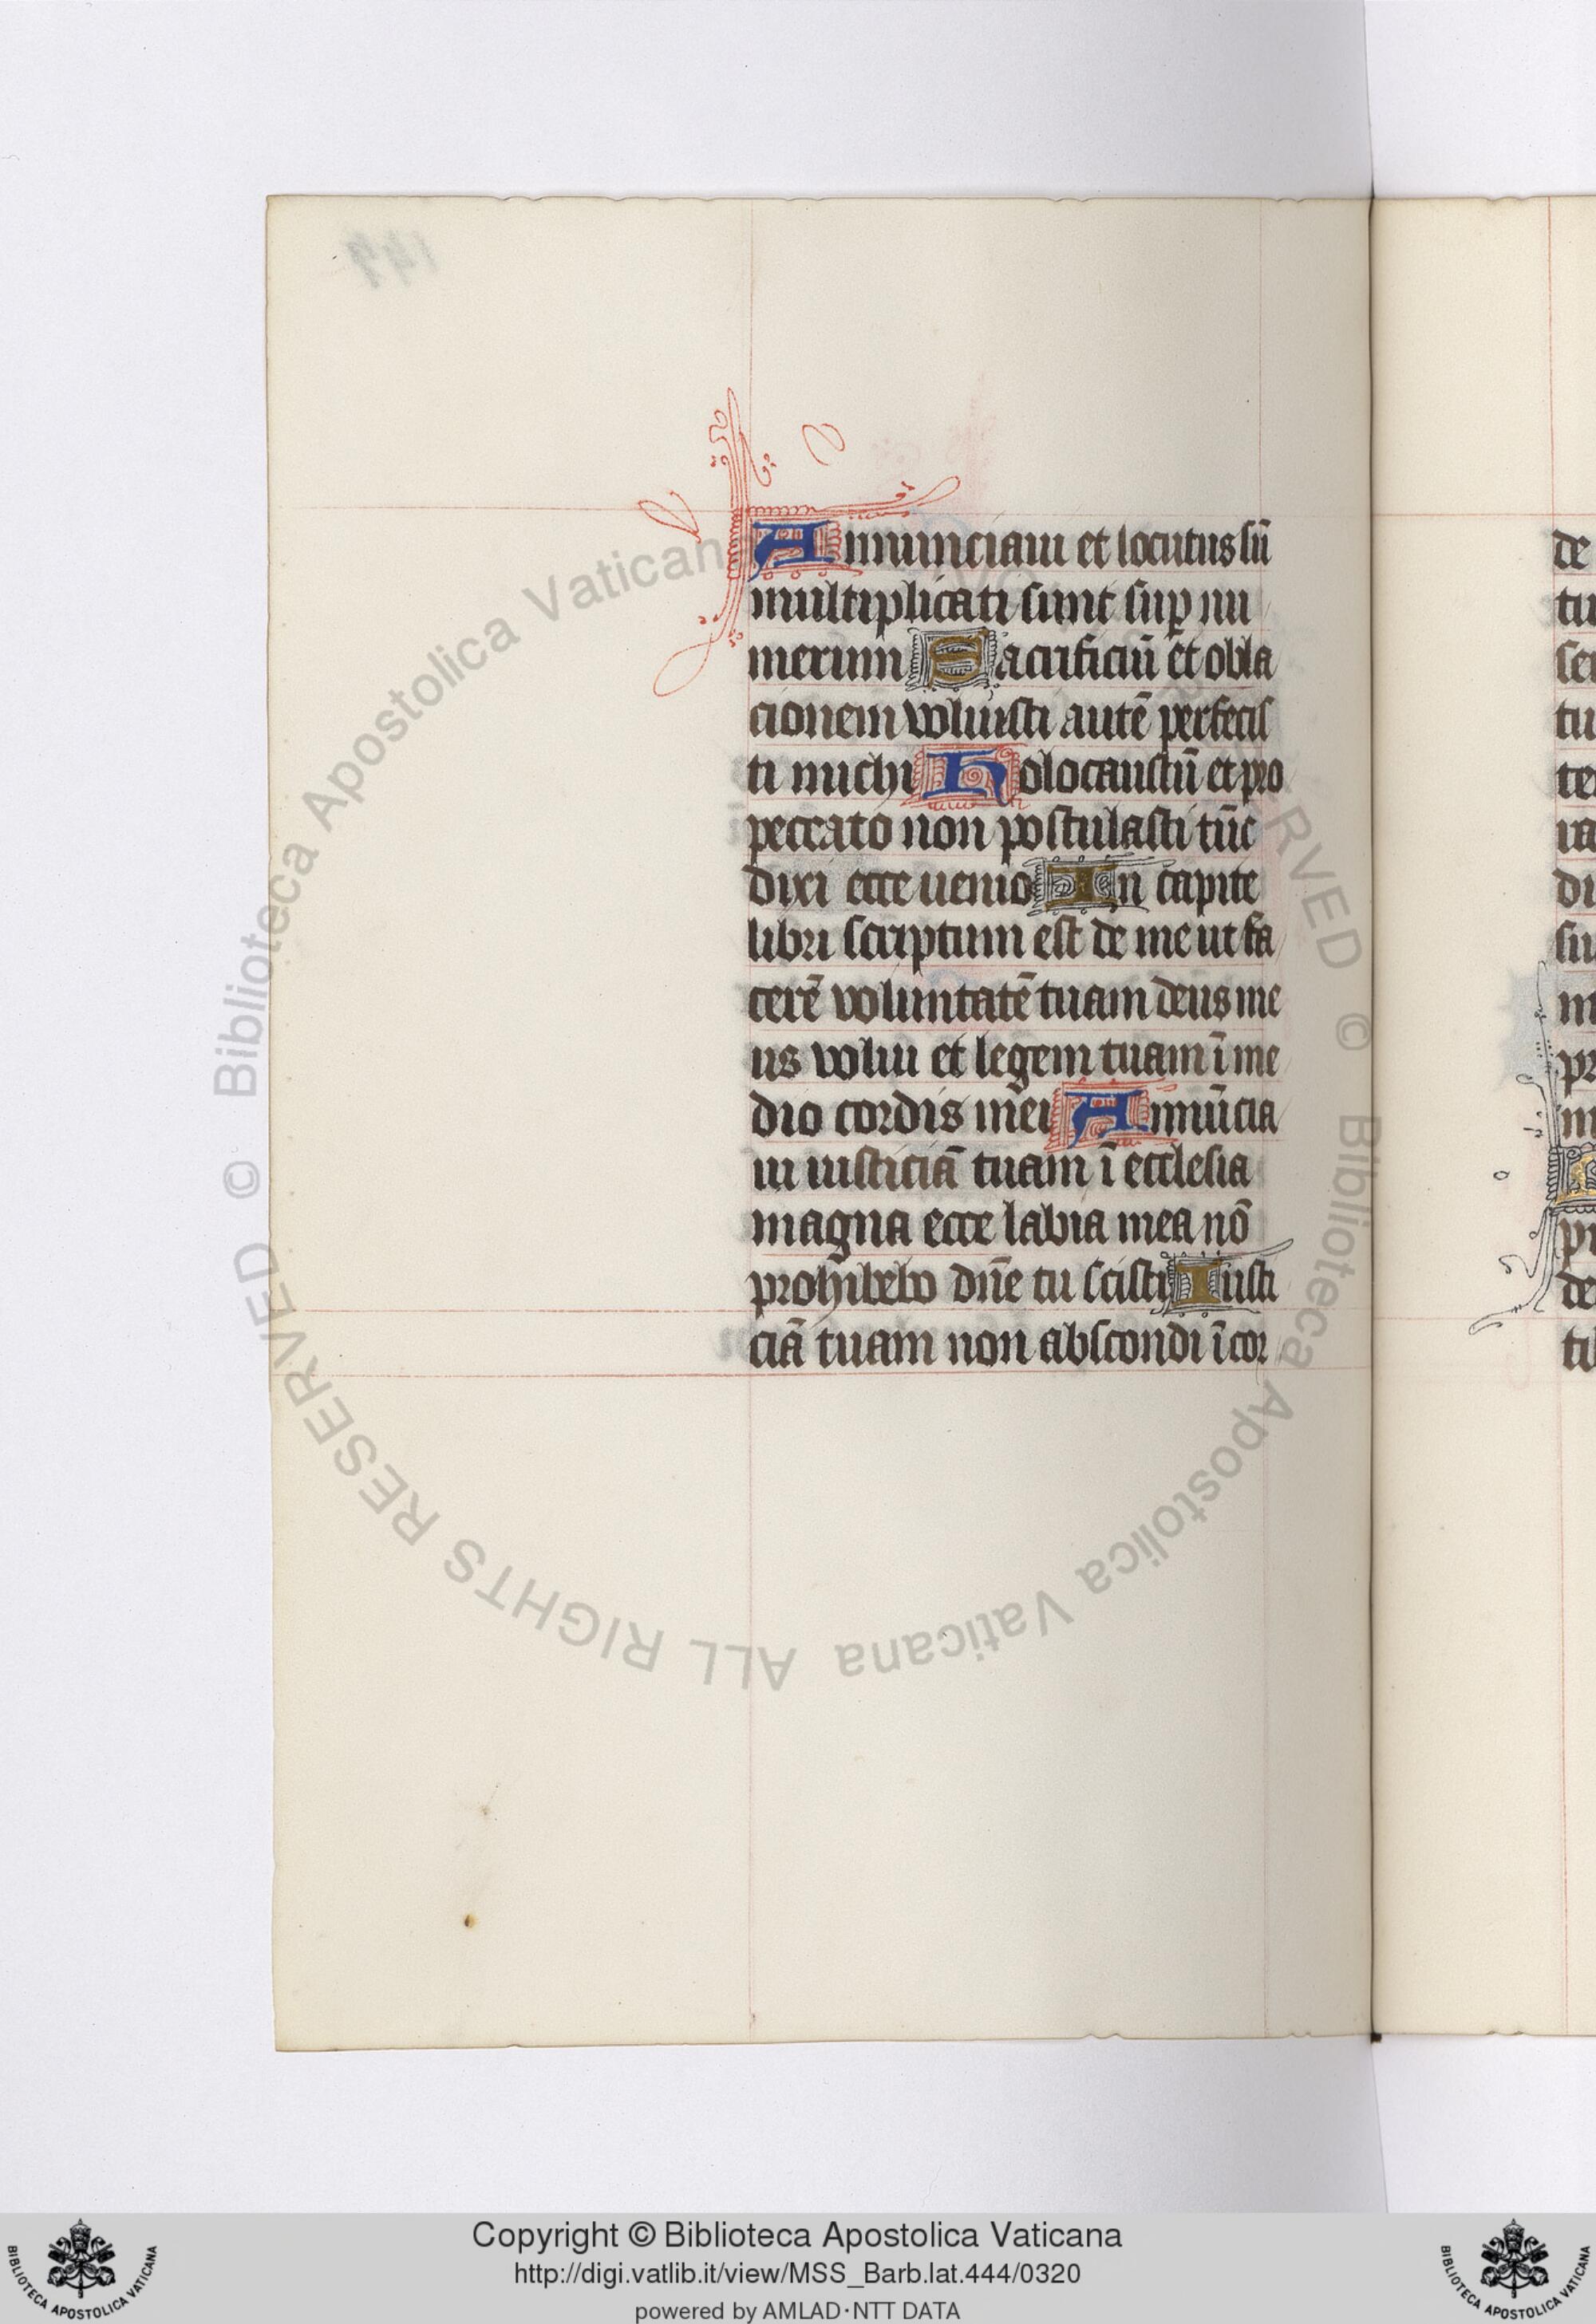 Annunciaui et locutus sū
multiplicati sunt sup nu
merum Sacrificiū et obla
cionem voluisti autē perfecis
ti michi Holocaustū et pro
peccato non postulasti tūc
dixi ecce uenio In capite
libri scriptum est de me ut fa
cerē voluntatē tuam deus me
us volui et legem tuam ī me
dio cordis mei Annūcia
ui iusticiā tuam ī ecclesia
magna ecce labia mea nō
prohibebo dn̄e tu scisti Iusti
ciā tuam non abscondi ī cor
de
tu
sen
tu
di
su
m
pr
m
de
© Biblioteca Apostolica Vaticana ALL RIGHTS RESERVED © Biblioteca Apostolica Vaticana
Copyright © Biblioteca Apostolica Vaticana
http://digi.vatlib.it/view/MSS_Barb.lat.444/0320
powered by AMLAD·NTT DATA
BIBLIOTECA APOSTOLICA VATICANA
BIBLIOTECA APOSTOLICA VATICANA